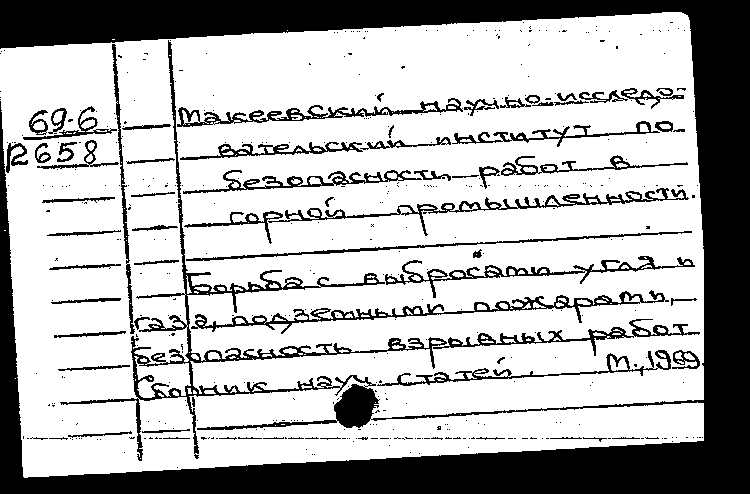 69.6
12658
Макеевский научно-исследо-
вательский институт по
безопасности работ в
горной промышленности.
Борьба с выбросами угля и
газа, подземными пожарами,
безопасность взрывных работ
Сборник науч. статей. М., 1969.